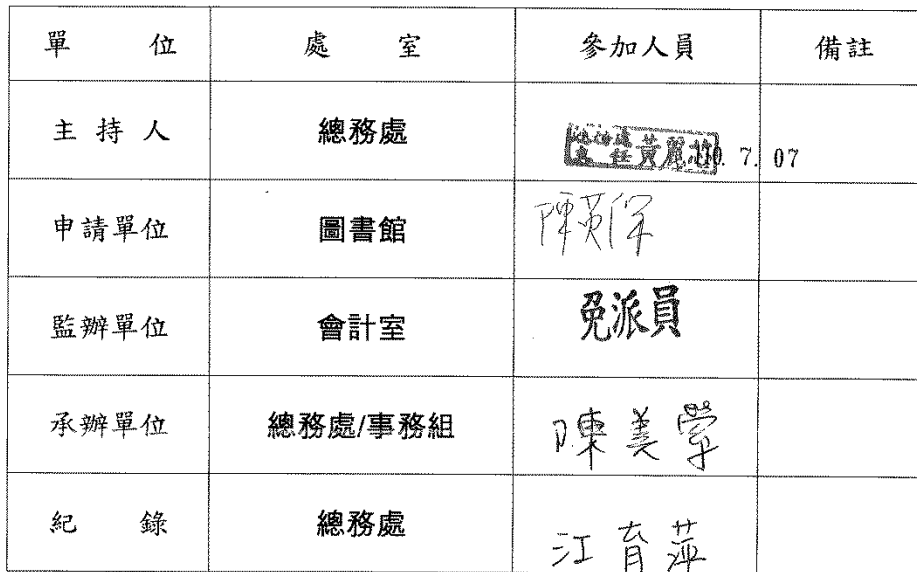 單 位 處 室 參加人員 備註
主 持 人 總務處 主 任 黃麗 7. 07
申請單位 圖書館 陳英
監辦單位 會計室 免派員
承辦單位 總務處/事務組 陳美
紀 錄 總務處 江育萍